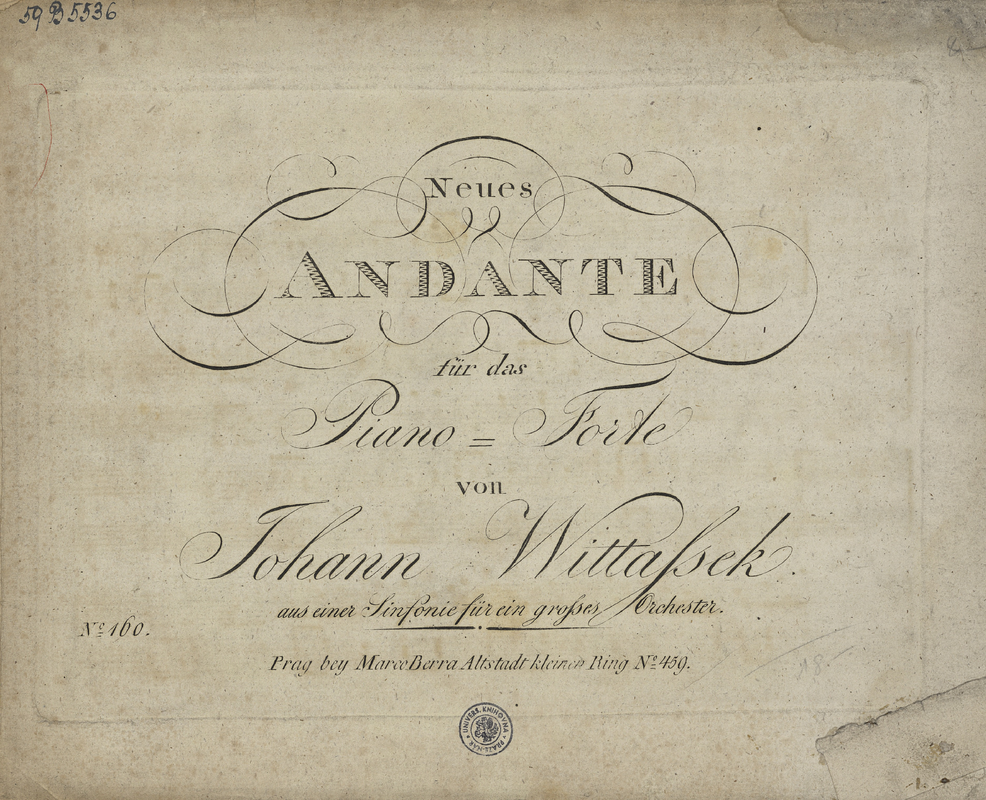 59 B 5536
Neues
ANDANTE
für das
Piano = Forte
von
Johann Wittaſsek.
aus einer Sinfonie für ein groſses Orchester.
No 160.
Prag bey Marco Berra Altstadt kleinen Ring No 459.
18
UNIVERS. KNIHOVNA